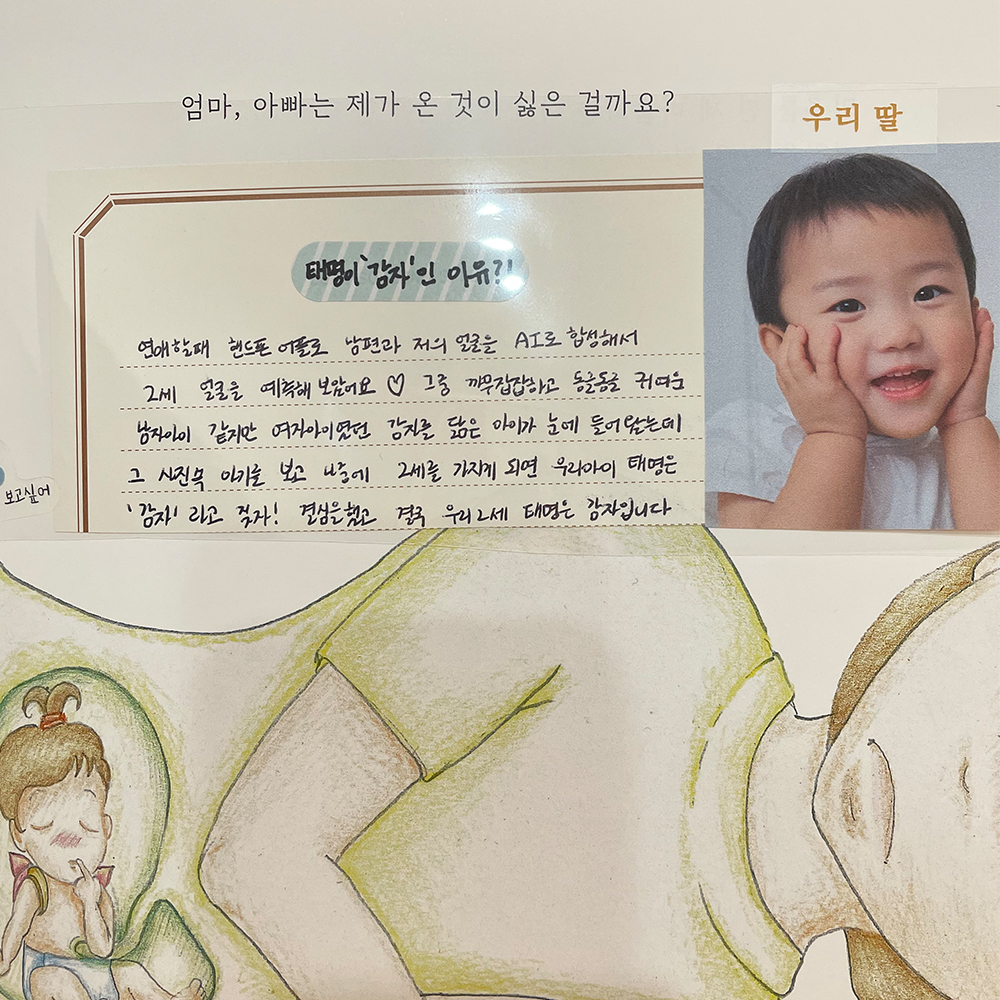 엄마, 아빠는 제가 온 것이 싫은 걸까요?
우리 딸
태명이 '감자'인 이유?!
연애할때 핸드폰 어플로 남편과 저의 얼굴을 AI로 합성해서
2세 얼굴을 예측해 보았어요 ♡ 그중 까무잡잡하고 동글동글 귀여운
남자아이 같지만 여자아이였던 감자를 닮은 아이가 눈에 들어왔는데
그 사진속 아기를 보고 나중에 2세를 가지게 되면 우리아이 태명은
'감자' 라고 짓자! 결심을했고 결국 우리2세 태명은 감자입니다
보고싶어